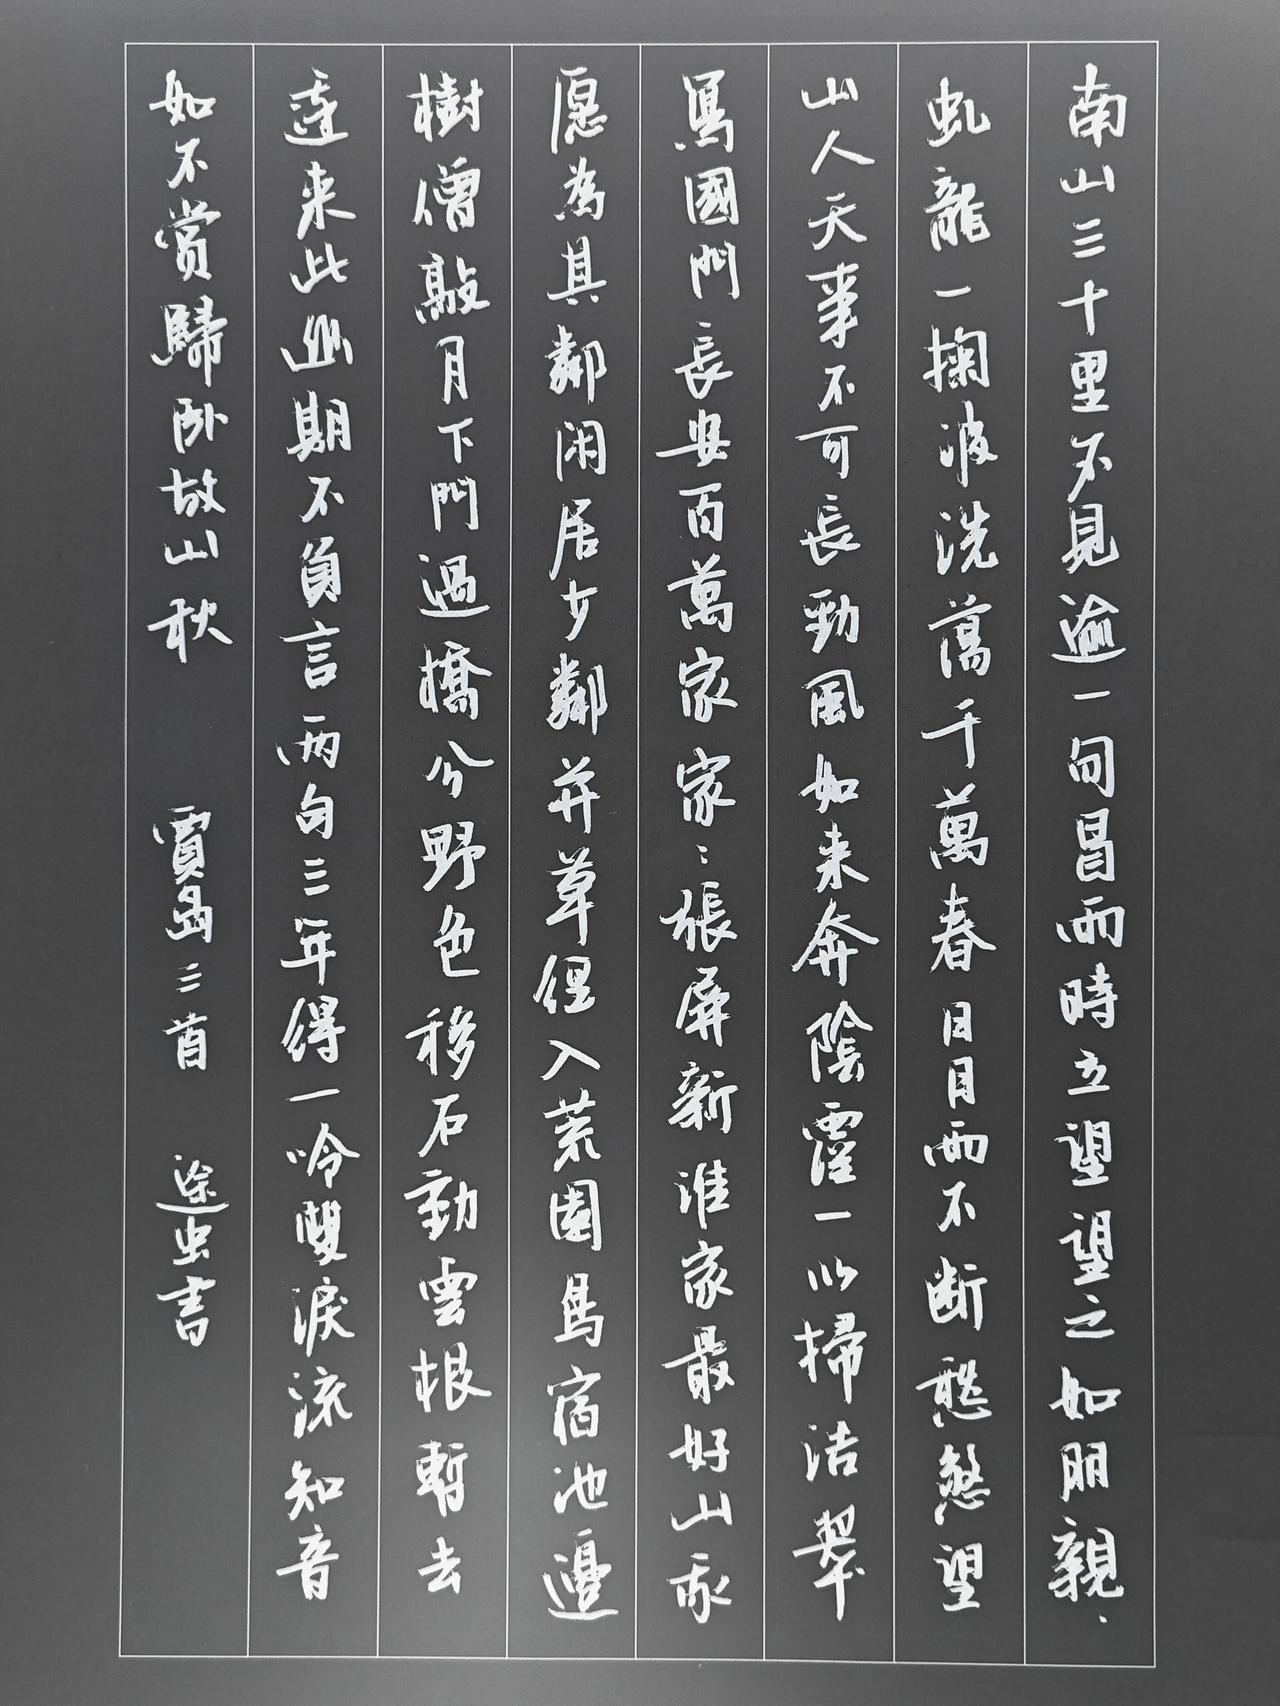 南山三十里不見逾一旬冒雨時立望望之如朋親
虬龍一掬波洗蕩千萬春日日雨不断愁煞望
山人天事不可長勁風如来奔陰霪一以掃浩翠
寫國門長安百萬家家:張屏新誰家最好山我
愿為其鄰闲居少鄰并草徑入荒園鳥宿池邊
樹僧敲月下門過橋分野色移石動雲根暫去
還来此幽期不負言两句三年得一吟雙淚流知音
如不賞歸卧故山秋 賈島三首 途虫書